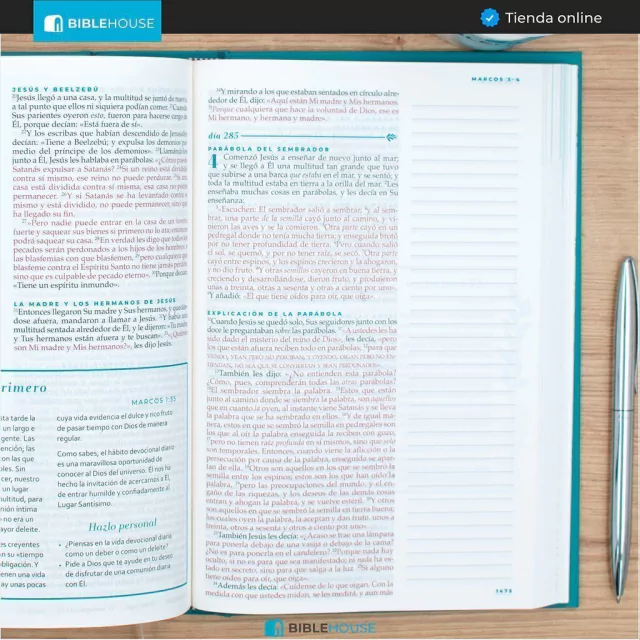 BIBLEHOUSE
Tienda online
JESÚS Y BEELZEBÚ
20Jesús llegó a una casa, y la multitud se juntó de nuevo,
a tal punto que ellos ni siquiera podían comer. 21Cuando
Sus parientes oyeron esto, fueron para hacerse cargo de
Él, porque decían: «Está fuera de sí».
22Y los escribas que habían descendido de Jerusalén
decían: «Tiene a Beelzebú; y expulsa los demonios por
medio del príncipe de los demonios». 23Llamándolos
junto a Él, Jesús les hablaba en parábolas: «¿Cómo puede
Satanás expulsar a Satanás? 24Si un reino está dividido
contra sí mismo, ese reino no puede perdurar. 25Si una
casa está dividida contra sí misma, esa casa no podrá
permanecer. 26Y si Satanás se ha levantado contra sí
mismo y está dividido, no puede permanecer, sino que
ha llegado su fin.
27»Pero nadie puede entrar en la casa de un hombre
fuerte y saquear sus bienes si primero no lo ata; entonces
podrá saquear su casa. 28En verdad les digo que todos los
pecados serán perdonados a los hijos de los hombres, y
las blasfemias con que blasfemen, 29pero cualquiera que
blasfeme contra el Espíritu Santo no tiene jamás perdón,
sino que es culpable de pecado eterno». 30Porque decían:
«Tiene un espíritu inmundo».
LA MADRE Y LOS HERMANOS DE JESÚS
31Entonces llegaron Su madre y Sus hermanos, y quedándose
dose afuera, mandaron a llamar a Jesús. 32Y había una
multitud sentada alrededor de Él, y le dijeron: «Tu madre
y Tus hermanos están afuera y te buscan». 33«¿Quiénes
son Mi madre y Mis hermanos?», les dijo Jesús.
rimero
MARCOS 1:35
ita tarde la
un largo e
gente. Las
ención; las
on las que
ples. Sin
cer, nuestro
un lugar
multitud, para
nión íntima
no era un
ayor deleite.
es creyentes
on su «tiempo
obligación. Y
enen una vida
ay unas pocas
cuya vida evidencia el dulce y rico fruto
de pasar tiempo con Dios de manera
regular.
Como sabes, el hábito devocional diario
es una maravillosa oportunidad de
conocer al Dios del universo. Él nos ha
hecho la invitación de acercarnos a Él,
de entrar humilde y confiadamente al
Lugar Santísimo.
Hazlo personal
• ¿Piensas en la vida devocional diaria
como un deber o como un deleite?
• Pide a Dios que te ayude en tu deseo
de disfrutar de una comunión diaria
con Él.
MARCOS 3–4
34Y mirando a los que estaban sentados en círculo alre-
dedor de Él, dijo: «Aquí están Mi madre y Mis hermanos.
35Porque cualquiera que hace la voluntad de Dios, ese es
Mi hermano, y hermana y madre».
día 285
PARÁBOLA DEL SEMBRADOR
4 Comenzó Jesús a enseñar de nuevo junto al mar;
y se llegó a Él una multitud tan grande que tuvo
que subirse a una barca que estaba en el mar, y se sentó; y
toda la multitud estaba en tierra a la orilla del mar. 2Les
enseñaba muchas cosas en parábolas, y les decía en Su
enseñanza:
3«¡Escuchen! El sembrador salió a sembrar; 4y al sem-
brar, una parte de la semilla cayó junto al camino, y vi-
nieron las aves y se la comieron. 5Otra parte cayó en un
pedregal donde no tenía mucha tierra; y enseguida brotó
por no tener profundidad de tierra. 6Pero cuando salió
el sol, se quemó, y por no tener raíz, se secó. 7Otra parte
cayó entre espinos, y los espinos crecieron y la ahogaron,
y no dio fruto. 8Y otras semillas cayeron en buena tierra, y
creciendo y desarrollándose, dieron fruto, y produjeron
unas a treinta, otras a sesenta y otras a ciento por uno».
9Y añadió: «El que tiene oídos para oír, que oiga».
EXPLICACIÓN DE LA PARÁBOLA
10Cuando Jesús se quedó solo, Sus seguidores junto con los
doce le preguntaban sobre las parábolas. 11«A ustedes les ha
sido dado el misterio del reino de Dios», les decía, «pero
los que están afuera reciben todo en parábolas; 12para que
VIENDO, VEAN PERO NO PERCIBAN, Y OYENDO, OIGAN PERO NO EN-
TIENDAN, NO SEA QUE SE CONVIERTAN Y SEAN PERDONADOS».
13También les dijo: «¿No entienden esta parábola?
¿Cómo, pues, comprenderán todas las otras parábolas?
14El sembrador siembra la palabra. 15Estos que están
junto al camino donde se siembra la palabra, son aquellos
que en cuanto la oyen, al instante viene Satanás y se lleva
la palabra que se ha sembrado en ellos. 16Y de igual ma-
nera, estos en que se sembró la semilla en pedregales son
los que al oír la palabra enseguida la reciben con gozo;
17pero no tienen raíz profunda en sí mismos, sino que solo
son temporales. Entonces, cuando viene la aflicción o la
persecución por causa de la palabra, enseguida se apar-
tan de ella. 18Otros son aquellos en los que se sembró la
semilla entre los espinos; estos son los que han oído la
palabra, 19pero las preocupaciones del mundo, y el en-
gaño de las riquezas, y los deseos de las demás cosas
entran y ahogan la palabra, y se vuelve estéril. 20Y otros
son aquellos en que se sembró la semilla en tierra buena;
los cuales oyen la palabra, la aceptan y dan fruto, unos a
treinta, otros a sesenta y otros a ciento por uno».
21También Jesús les decía: «¿Acaso se trae una lámpara
para ponerla debajo de una vasija o debajo de la cama?
¿No es para ponerla en el candelero? 22Porque nada hay
oculto, si no es para que sea manifestado; ni nada ha es-
tado en secreto, sino para que salga a la luz. 23Si alguno
tiene oídos para oír, que oiga».
24Además les decía: «Cuídense de lo que oigan. Con la
medida con que ustedes midan, se les medirá, y aun más
1473
BIBLEHOUSE